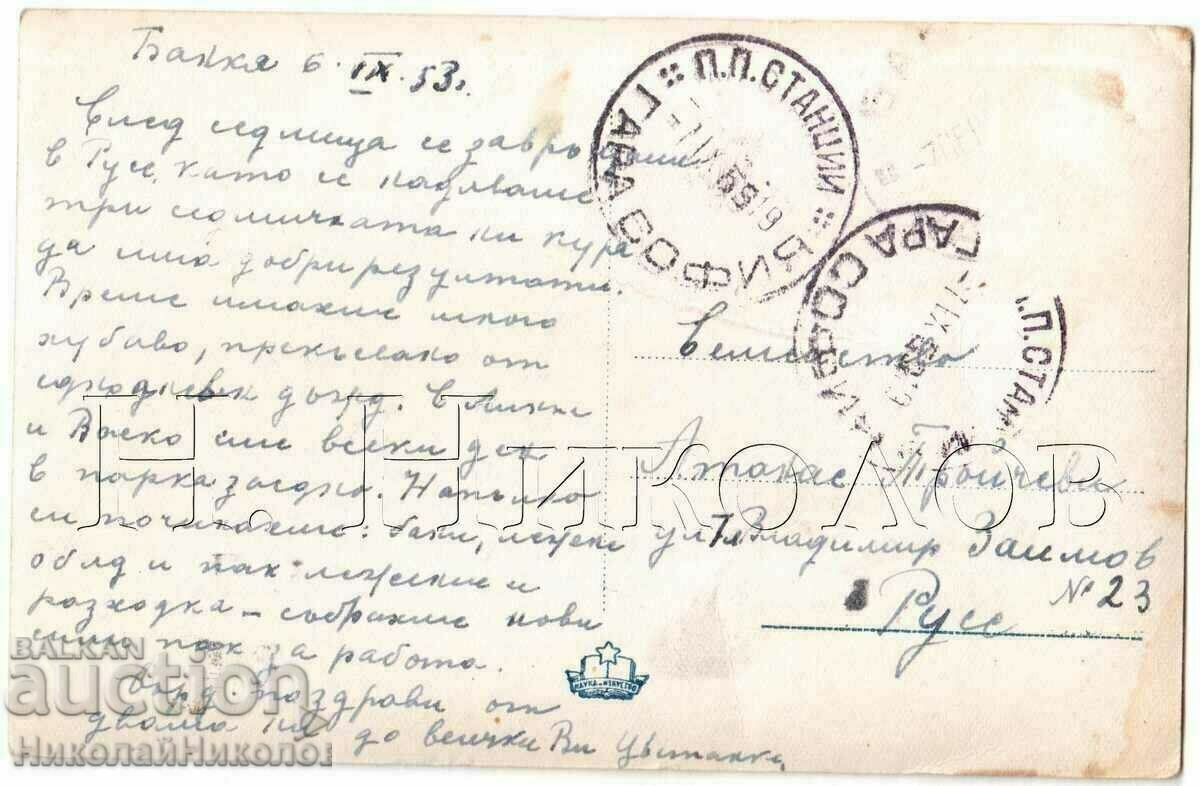 Банкя 6. IX. 53 г.
След седмица се завръщаме
в Русе, като се надяваме
три седмичната ни кура
да има добри резултати.
Време имахме много
хубаво, прекъснато от
еднодневен дъжд. С Лиляна
и Васко сме всеки ден
в парка заедно. Напълно
си починахме: бани, лежене
обяд и пак лежене и
разходка – събрахме нови
сили пак за работа.
Сърд. поздрави от
двама ни до всички Ви Цветанка
П.П. СТАНЦИИ
ГАРА СОФИЯ
ГАРА СОФИЯ
П.П. СТАН
Семейство
Атанас Тройчеви
ул. Владимир Заимов
№ 23
Русе
НАУКА и ИЗКУСТВО
Н. НИКОЛОВ
BALKAN
auction
НиколайНиколов